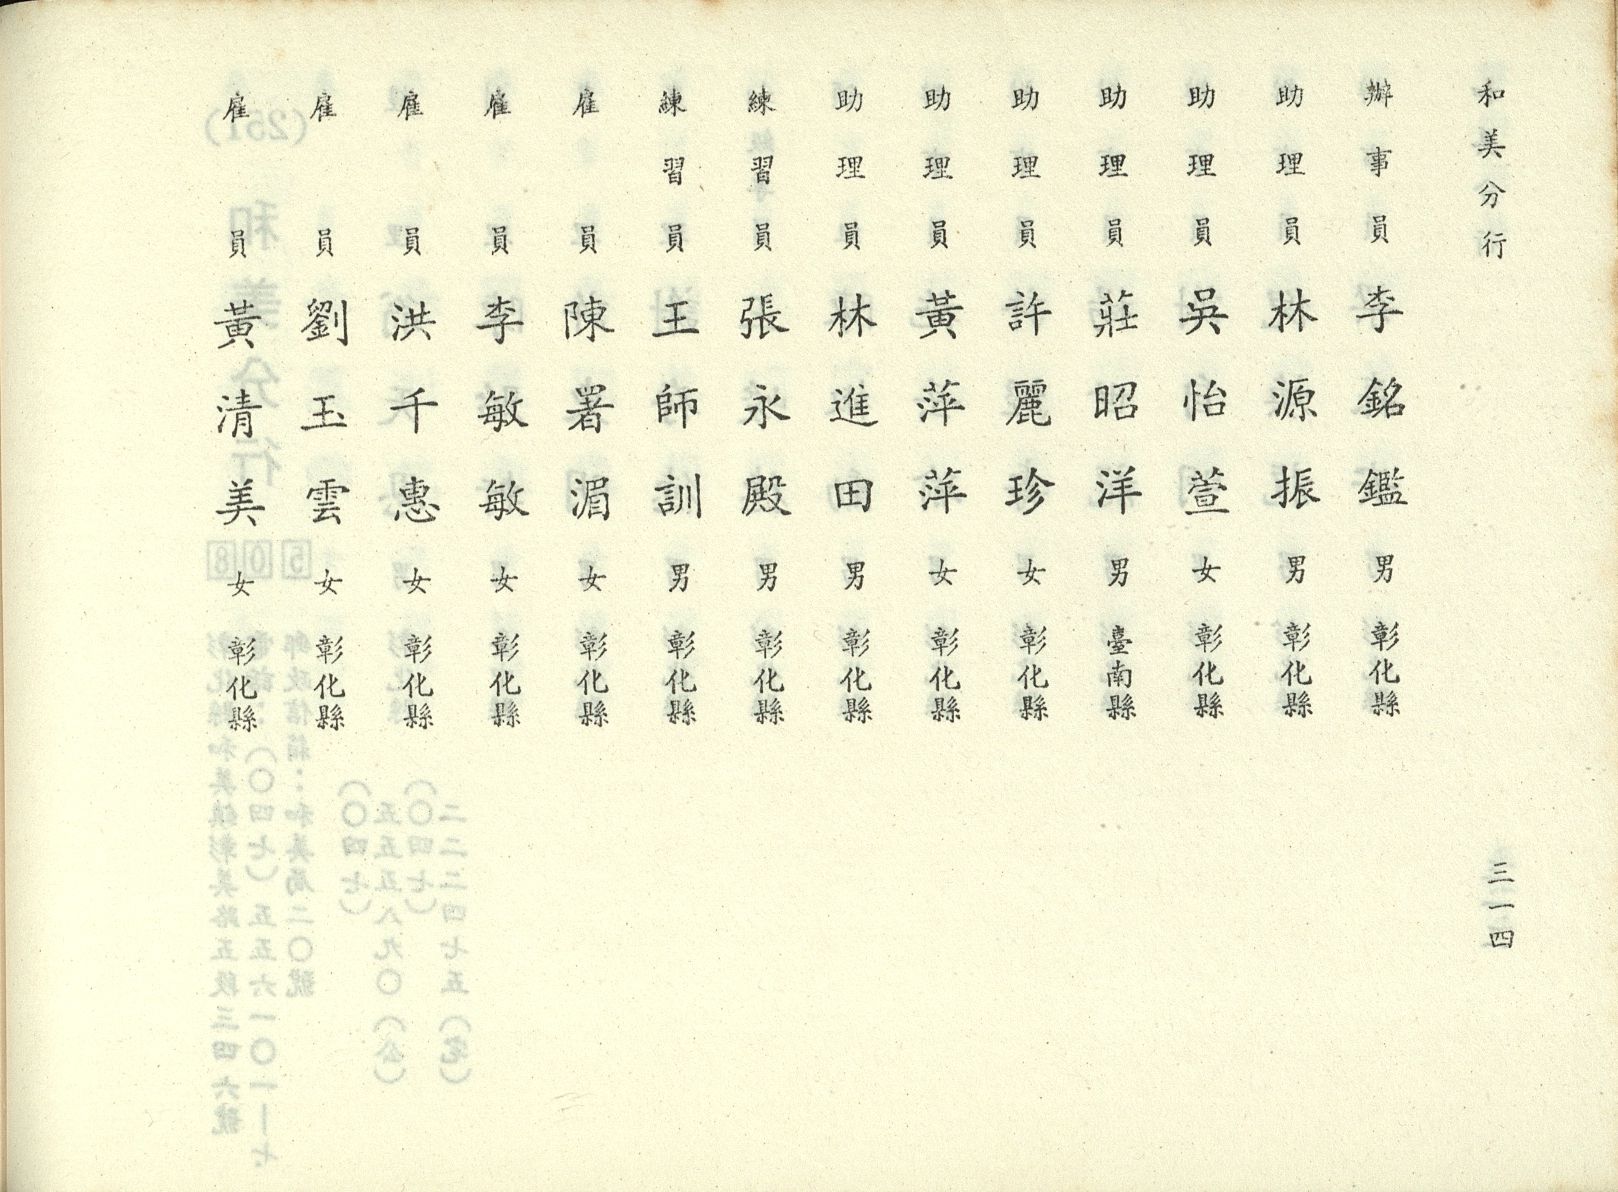 和美分行
辦事員 李銘鑑 男 彰化縣
助理員 林源振 男 彰化縣
助理員 吳怡萱 女 彰化縣
助理員 莊昭洋 男 臺南縣
助理員 許麗珍 女 彰化縣
助理員 黃萍萍 女 彰化縣
助理員 林進田 男 彰化縣
練習員 張永殿 男 彰化縣
練習員 王師訓 男 彰化縣
雇員 陳署湄 女 彰化縣
雇員 李敏敏 女 彰化縣
雇員 洪千惠 女 彰化縣
雇員 劉玉雲 女 彰化縣
雇員 黃清美 女 彰化縣
三一四